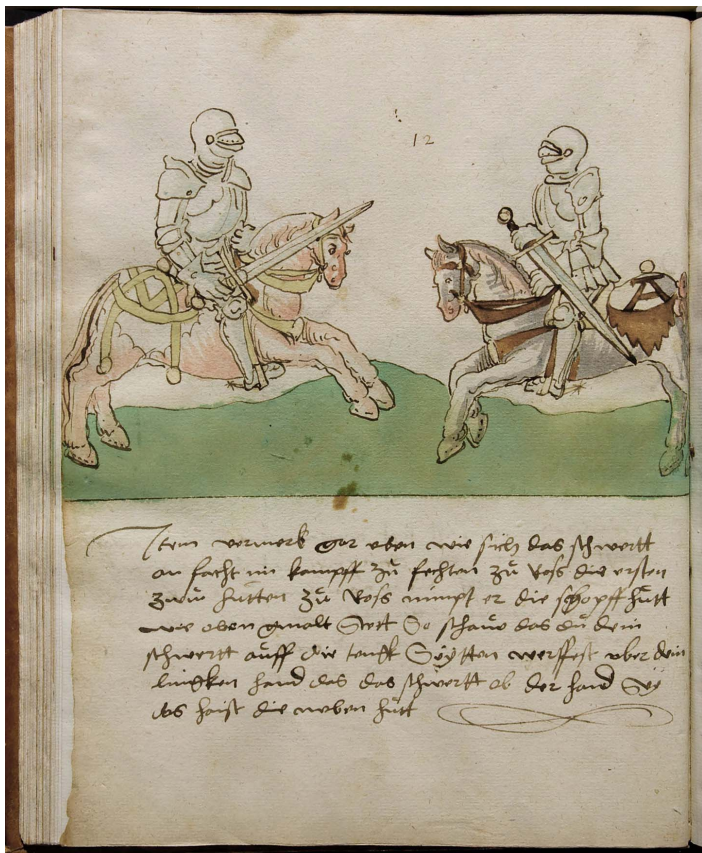 12
Item vermerk gar eben wie sich das schwertt
an facht im kampff zů fechten zů Ross die ersten
zwů hutten zů Ross nimpt er die schopff hůtt
wie oben gmalt Stet So schaůw das dů dein
schwertt aůff die lengk Seÿtten werffest vber dein
lingken hand das das schwertt ob der hand Seÿ
das haist die neben hůtt